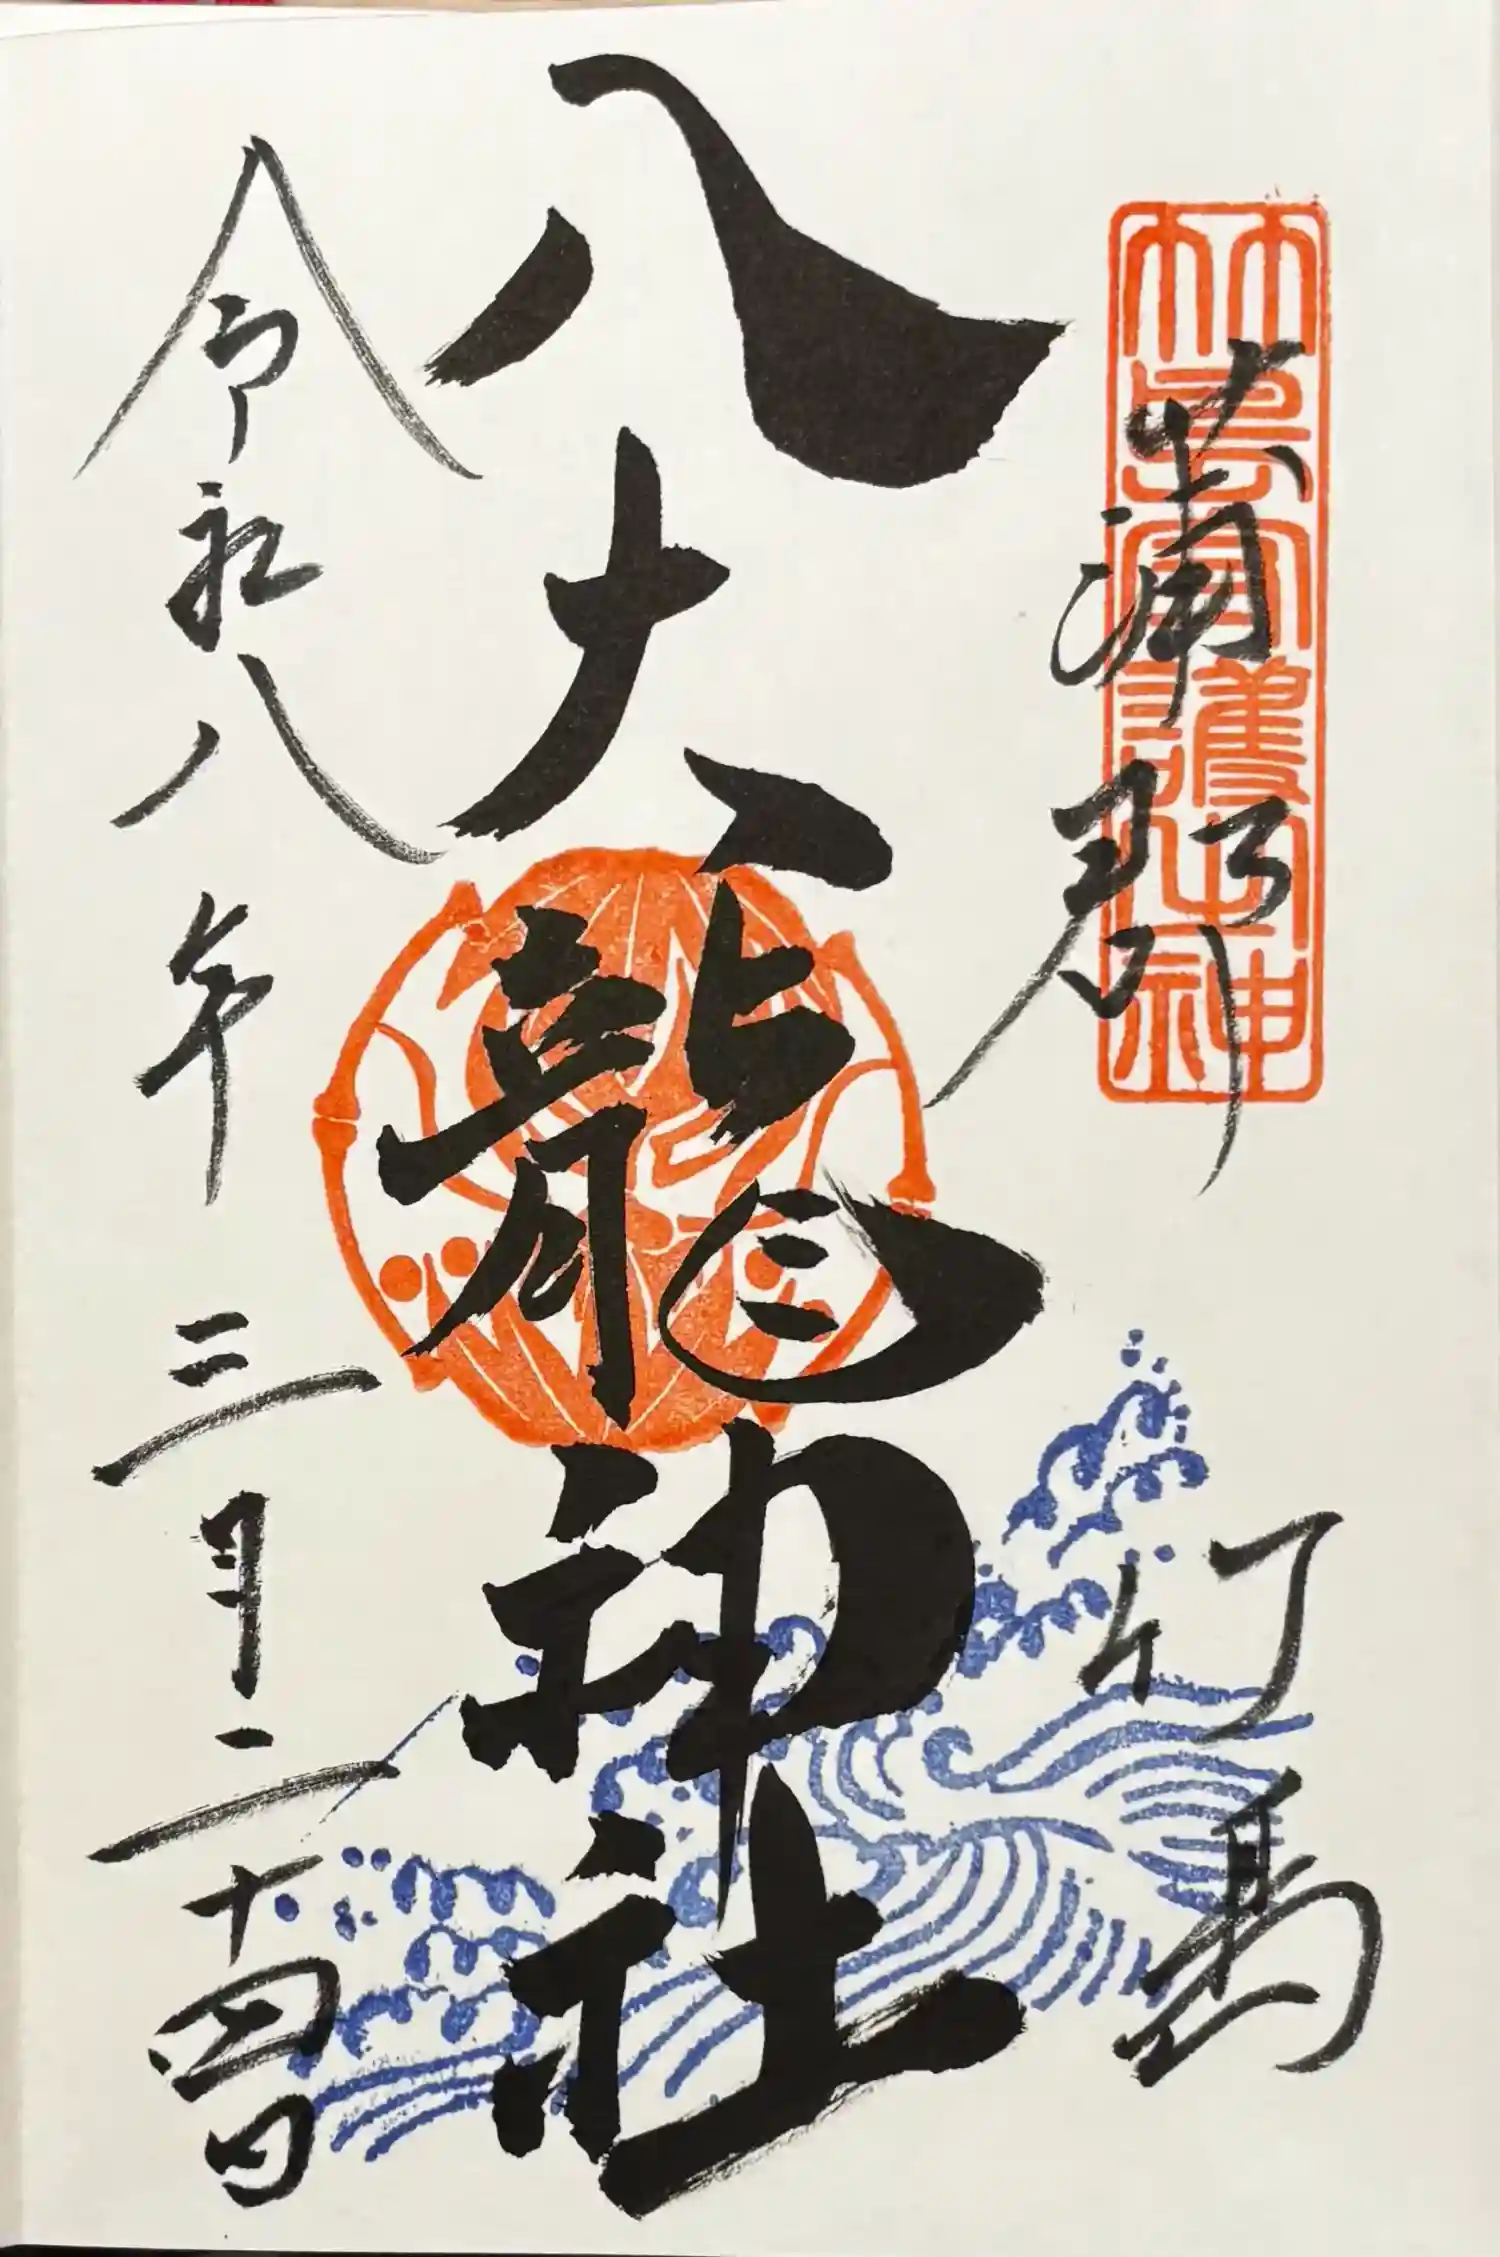 竹島守護之神
蒲郡
竹島
八大龍神社
令和八年三月二十四日